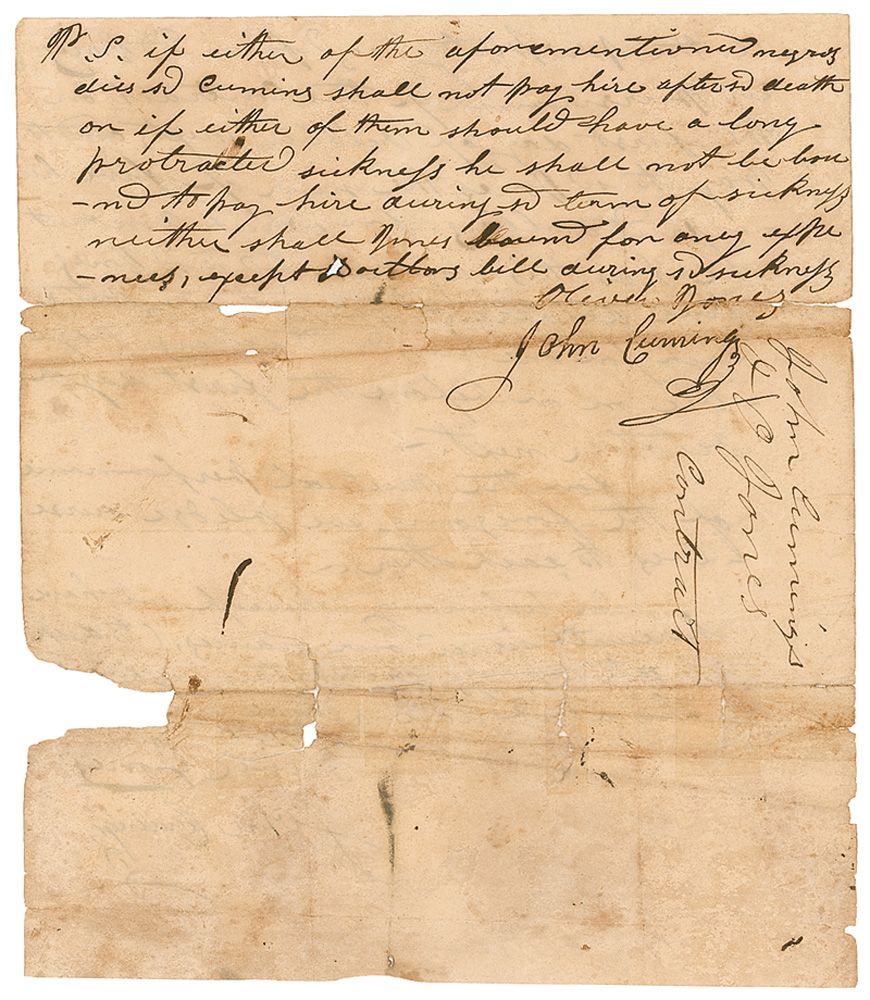 P.S. if either of the aforementioned negros
dies sd Cuming shall not pay hire after sd death
or if either of them should have a long
protracted sickness he shall not be bou
-nd to pay hire during sd term of sickness
neither shall Jones bound for any expe
-nces, except Doctors bill during sd sickness
Oliver Jones
John Cuming
John Cumings
&
Jones
Contract